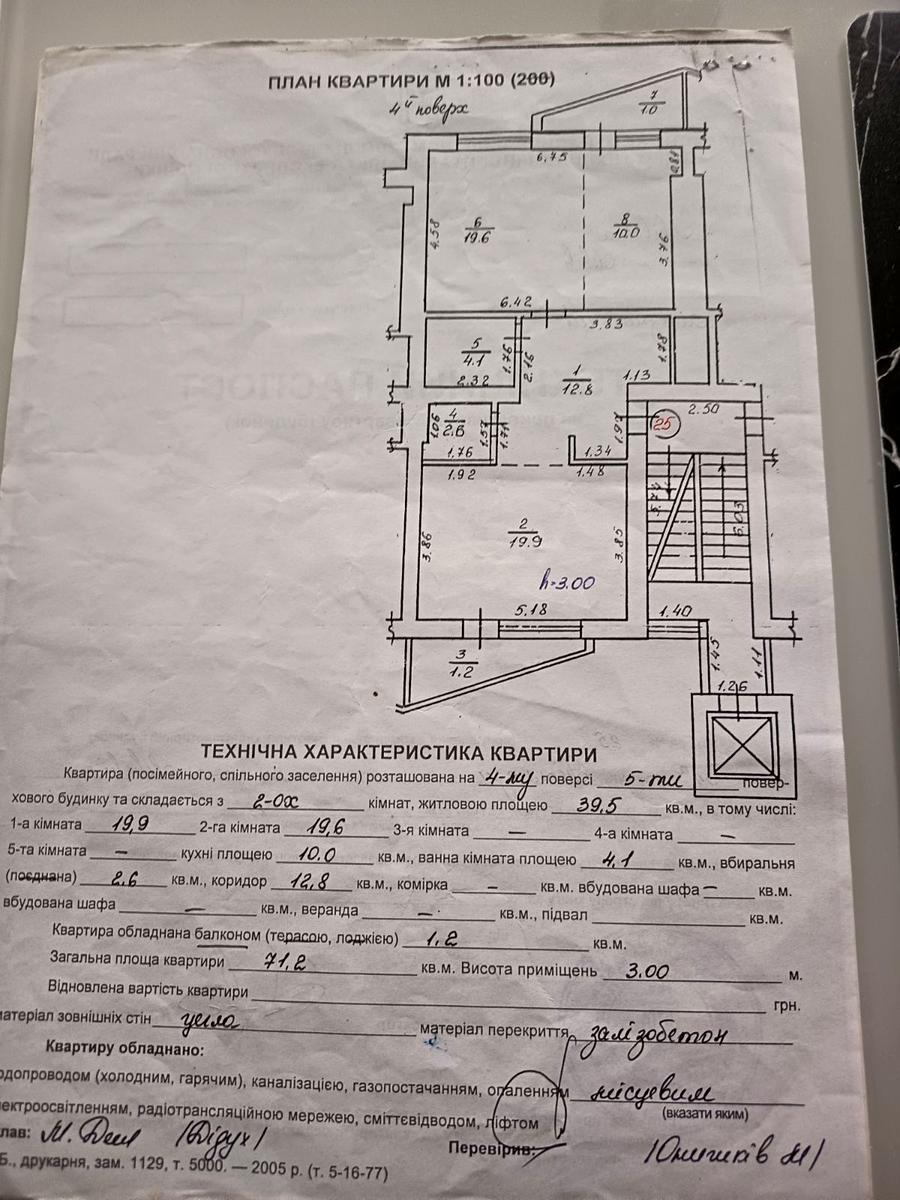 ПЛАН КВАРТИРИ М 1:100 (200)
4й поверх
7
1.0
6,75
0.81
4.58
6
19.6
8
10.0
3.76
6.42
3.83
5
4.1
1.76
2.16
1.78
2.32
1
12.8
1.13
2.50
25
4
2.6
1.06
1.57
1.71
1.76
1.34
1.92
1.48
2
19.9
3.86
3.85
5.03
h=3.00
5.18
1.40
3
1.2
1.45
1.11
1.26
ТЕХНІЧНА ХАРАКТЕРИСТИКА КВАРТИРИ
Квартира (посімейного, спільного заселення) розташована на 4-му поверсі 5-ти повер-
хового будинку та складається з 2-ох кімнат, житловою площею 39,5 кв.м., в тому числі:
1-а кімната 19,9 2-га кімната 19,6 3-я кімната — 4-а кімната —
5-та кімната — кухні площею 10.0 кв.м., ванна кімната площею 4.1 кв.м., вбиральня
(поєднана) 2.6 кв.м., коридор 12,8 кв.м., комірка — кв.м. вбудована шафа — кв.м.
вбудована шафа — кв.м., веранда — кв.м., підвал кв.м.
Квартира обладнана балконом (терасою, лоджією) 1,2 кв.м.
Загальна площа квартири 71,2 кв.м. Висота приміщень 3.00 м.
Відновлена вартість квартири грн.
матеріал зовнішніх стін цегла матеріал перекриття залізобетон
Квартиру обладнано:
одопроводом (холодним, гарячим), каналізацією, газопостачанням, опаленням місцевим
(вказати яким)
ектроосвітленням, радіотрансляційною мережею, сміттєвідводом, ліфтом
лав: /Дідух/ Перевірив:
Б., друкарня, зам. 1129, т. 5000. — 2005 р. (т. 5-16-77)